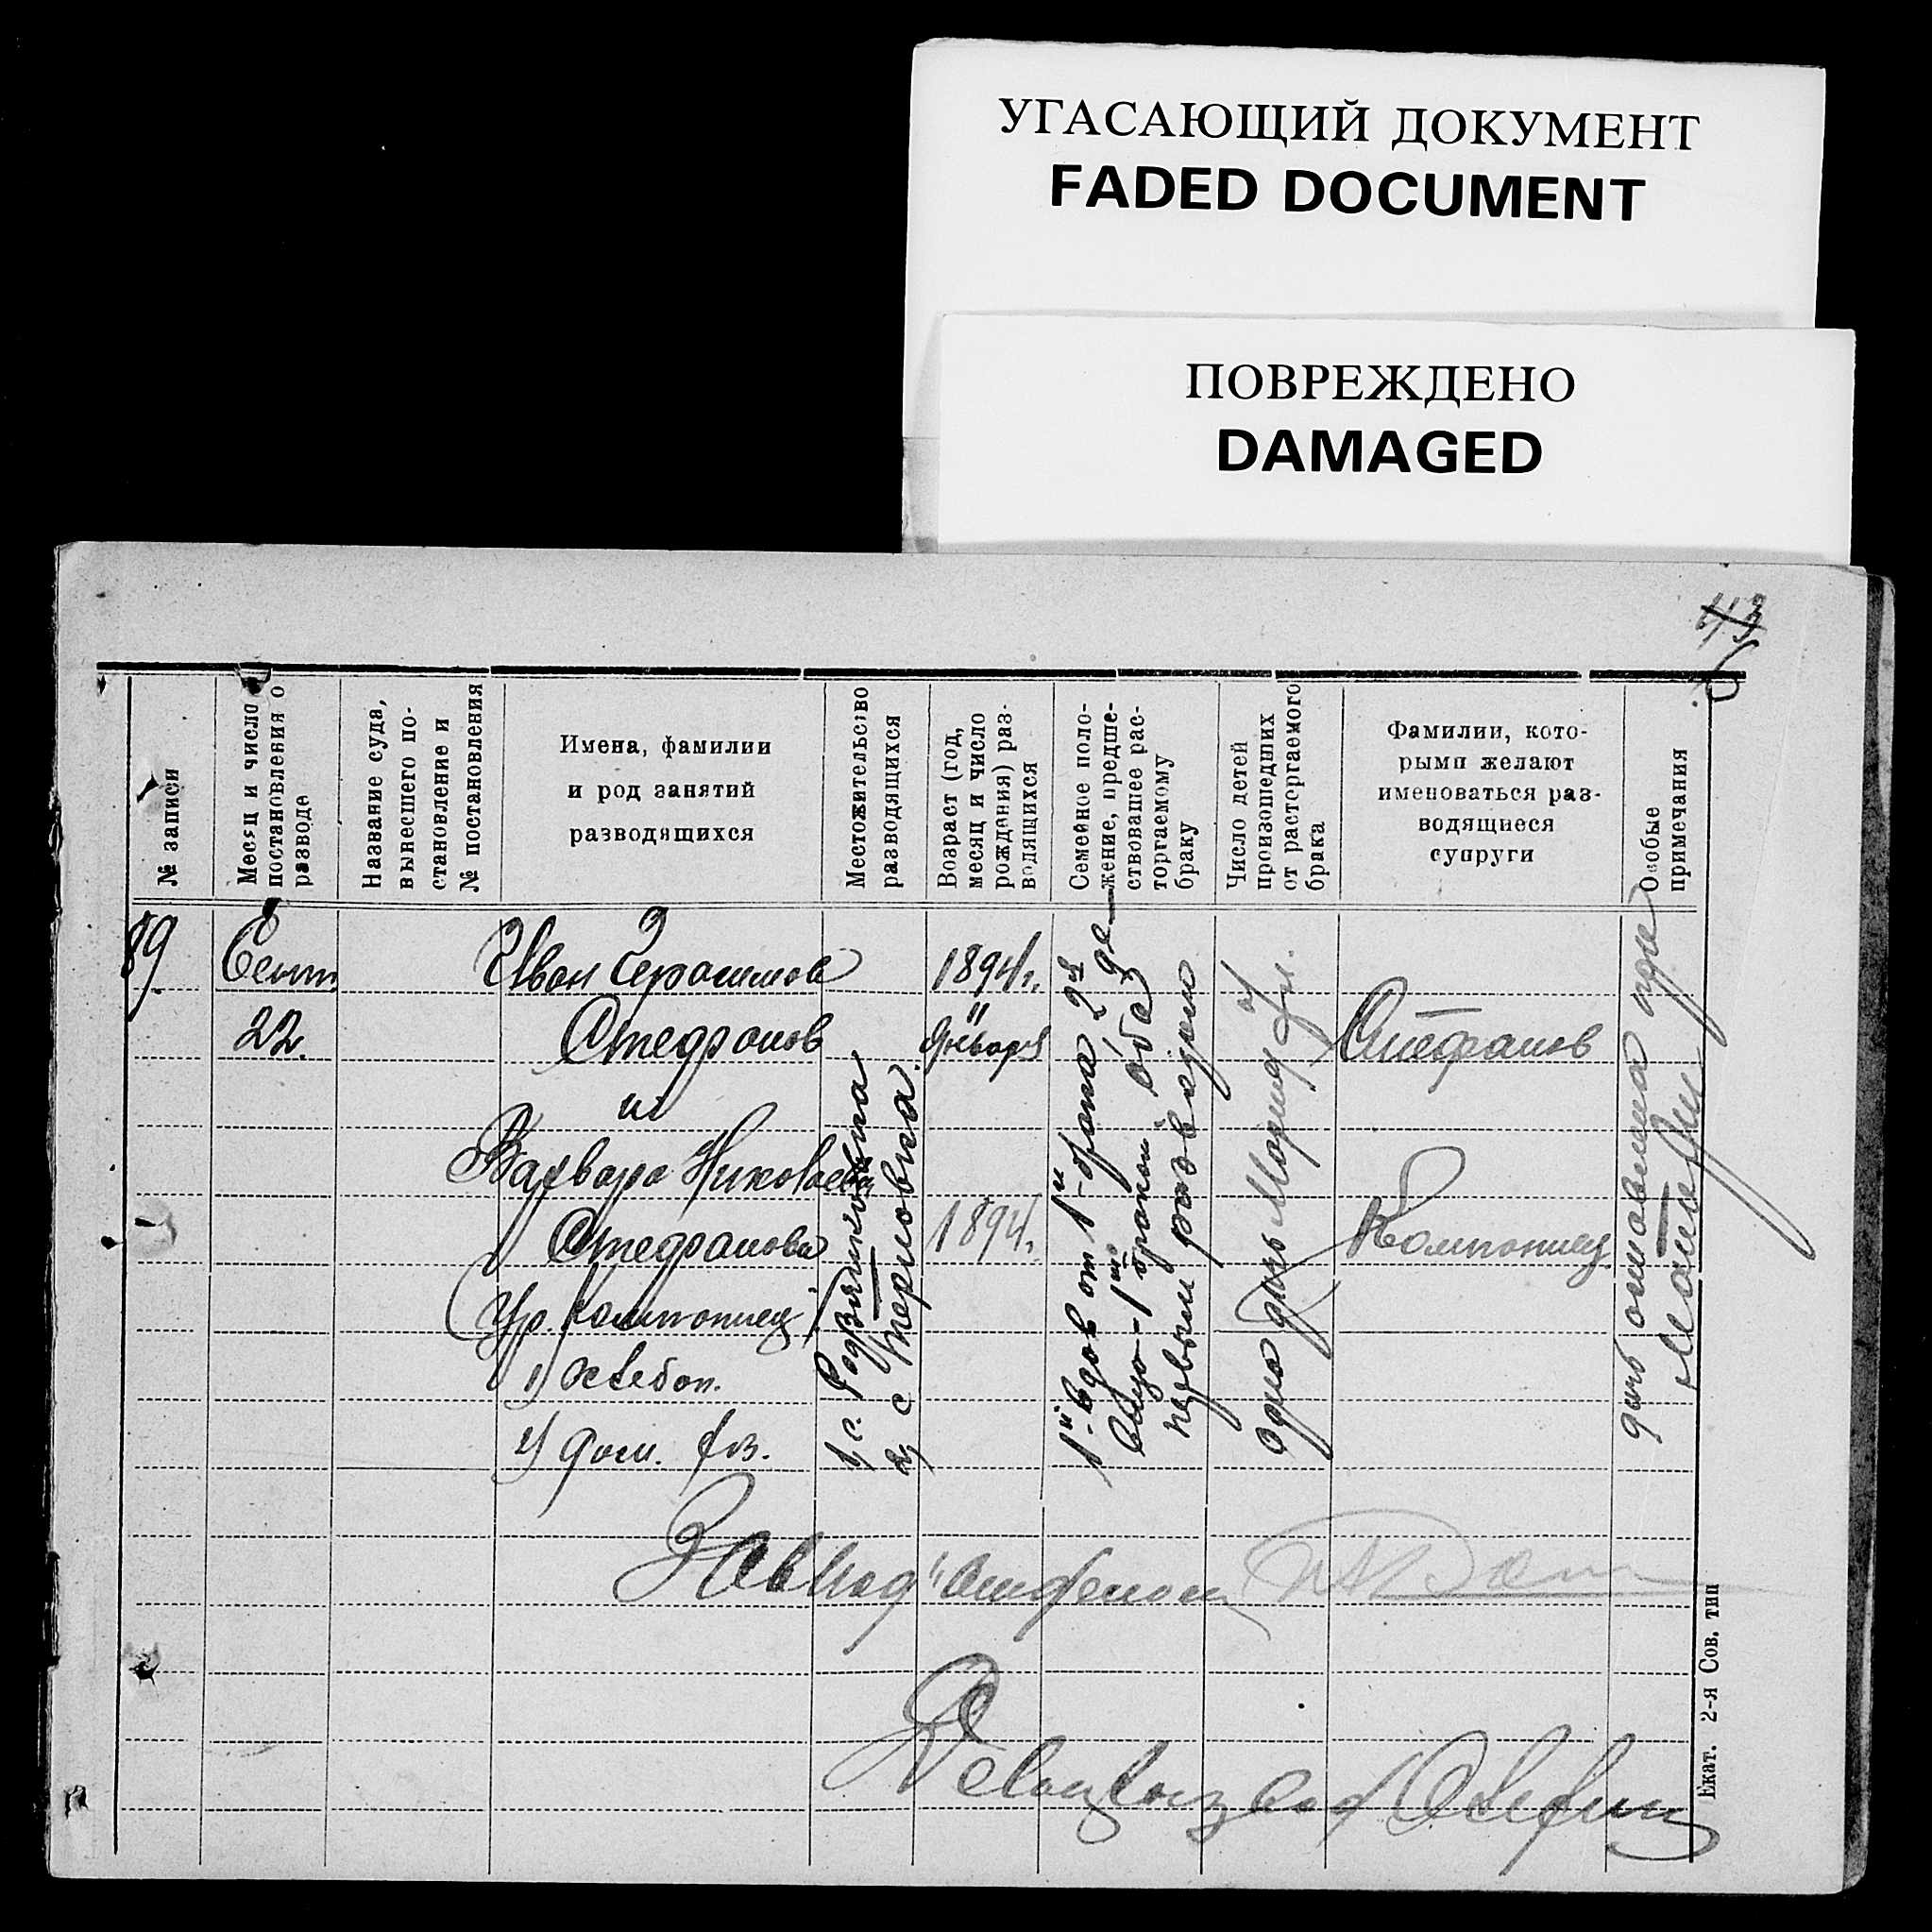 УГАСАЮЩИЙ ДОКУМЕНТ
FADED DOCUMENT
ПОВРЕЖДЕНО
DAMAGED
43
№ записи
Месяц и число
постановления о
разводе
Название суда,
вынесшего по-
становление и
№ постановления
Имена, фамилии
и род занятий
разводящихся
Местожительсво
разводящихся
Возраст (год,
месяц и число
рождения) раз-
водящихся
Семейное поло-
жение, предше-
ствовавшее рас-
торгаемому
браку
Число детей
произошедших
от расторгаемого
брака
Фамилии, кото-
рыми желают
именоваться раз-
водящиеся
супруги
Особые
примечания
89
Сент.
22.
Иван Герасимов
Стефанов
и
Варвара Николаева
Стефанова
(ур. Компониец)
1) хлебоп.
2) дом. хоз.
1) с.
2) с
1894 г.
января
1894 г.
1й - вдов от 1й брака 2й де-
вица - 1м браком оба
первым разводом
Одна дочь Мария
Стефанов
Компониец
дочь оставлена при
матери
Зав под
Делопроизвод
Екат. 2-я Сов. тип